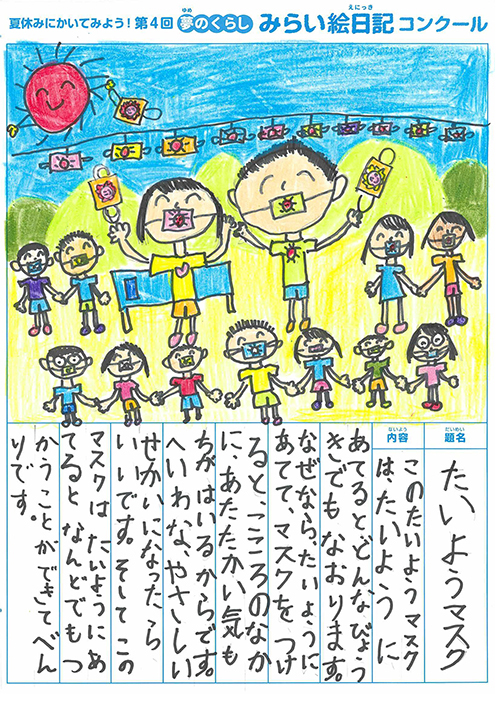 夏休みにかいてみよう！第4回 夢のくらし みらい絵日記 コンクール
ゆめ
えにっき
だいめい
題名
たいようマスク
ないよう
内容
このたいようマスク
は、たいように
あてるとどんなびょう
きでもなおります。
なぜなら、たいように
あてて、マスクをつけ
ると、こころのなか
に、あたたかい気も
ちがはいるからです。
へいわな、やさしい
せかいになったら
いいです。そしてこの
マスクはたいようにあ
てるとなんどでもつ
かうことができてべん
りです。